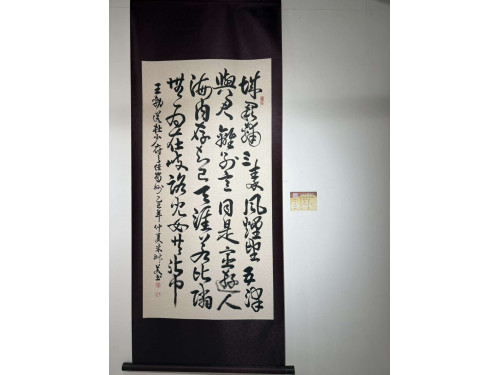 城闕輔三秦風煙望五津
與君離別意同是宦遊人
海内存知己天涯若比鄰
無為在岐路兒女共沾巾
王勃送杜少府之任蜀州乙巳年仲夏